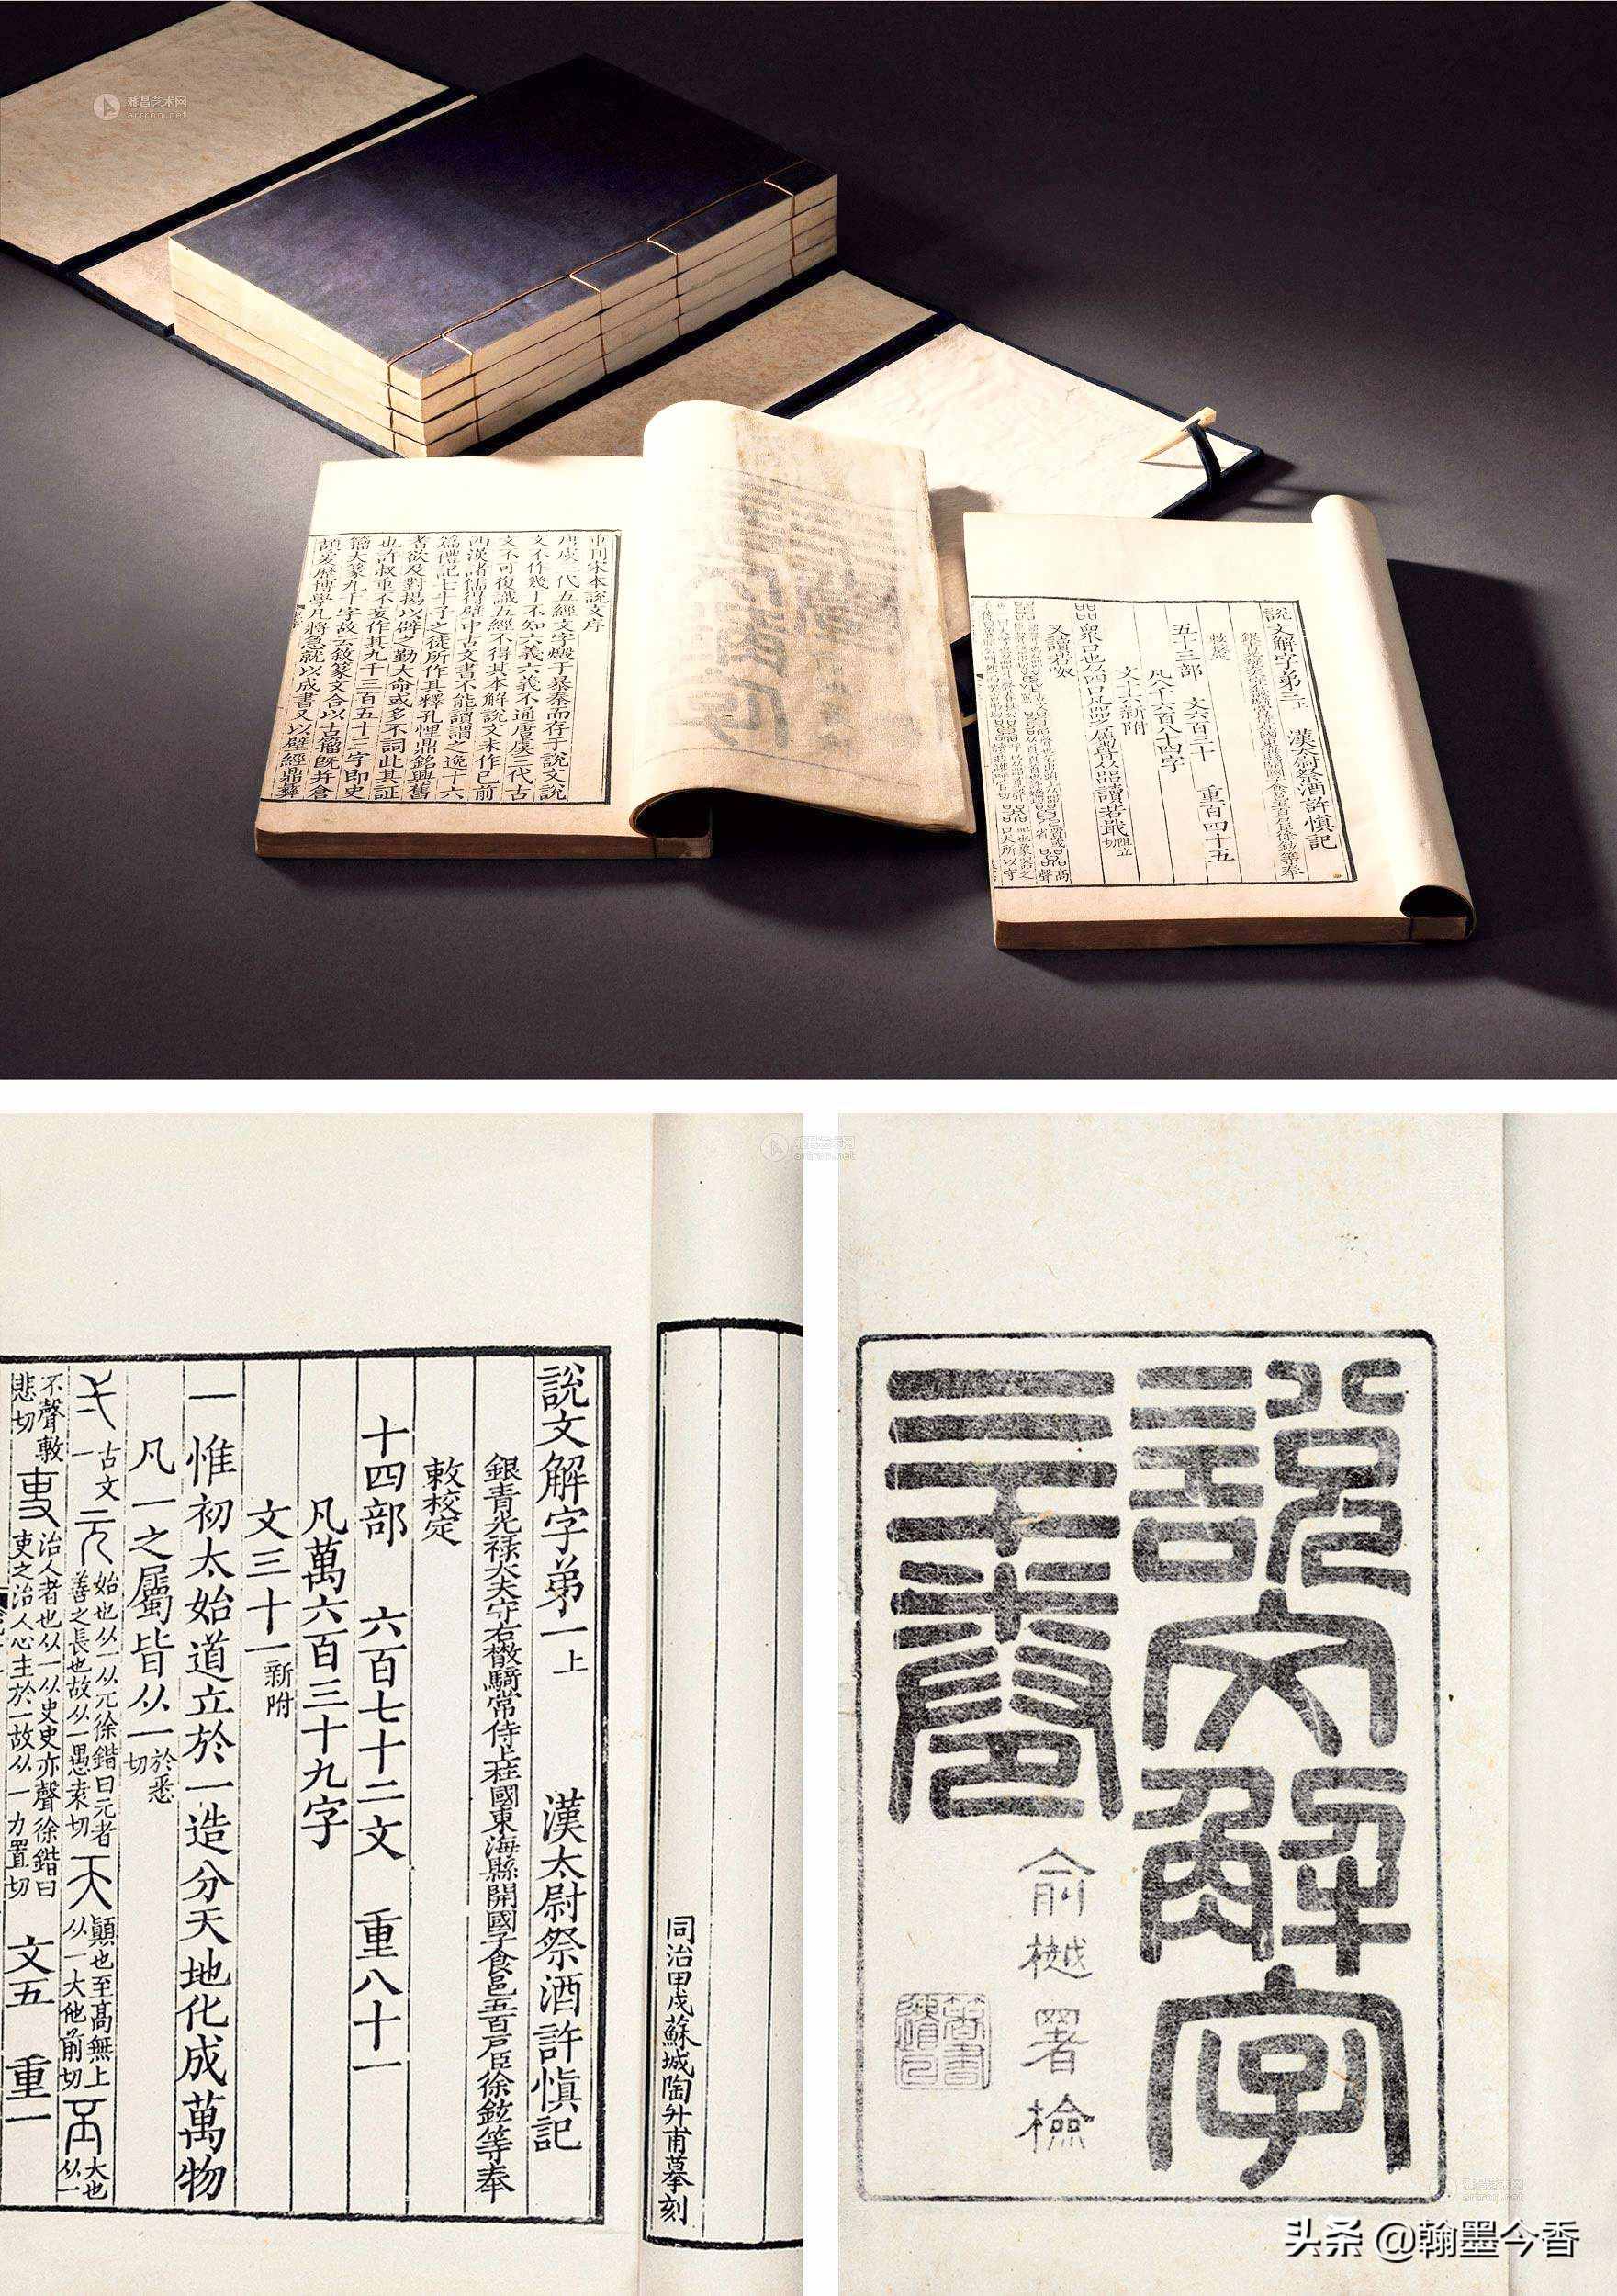 雅昌艺术网
artron.net
重刊宋本說文序
唐虞三代五經文字燬于暴秦而存于說文說
文不作幾于不知六義六義不通唐虞三代古
文不可復識五經不得其本解說文未作已前
西漢諸儒得壁中古文書不能讀謂之逸十六
篇禮記七十子之徒所作其釋孔悝鼎銘興舊
耆欲及對揚以辟之勤大命或多不詞此其証
也許叔重不妄作其九千三百五十三字即史
籀大篆九千字故云敘篆文合以古籀旣并倉
頡爰歷博學凡將急就以成書又以壁經鼎彝
說文解字弟三上 漢太尉祭酒許慎記
敕校定
五十三部 文六百三十 重百四十五
凡八千六百八十四字
文十六新附
㗊衆口也从四口凡㗊之屬皆从㗊讀若戢阻立切
又讀若呶
說文解字弟一上 漢太尉祭酒許慎記
銀青光祿大夫守右散騎常侍上柱國東海縣開國子食邑五百戶臣徐鉉等奉
敕校定
十四部 六百七十二文 重八十一
凡萬六百三十九字
文三十一新附
一惟初太始道立於一造分天地化成萬物
凡一之屬皆从一於悉切
弌古文一元始也从一从兀徐鍇曰元者善之長也故从一愚袁切天顚也至高無上从一大他前切丕大也从一
不聲敷悲切吏治人者也从一从史史亦聲徐鍇曰吏之治人心主於一故从一力置切 文五 重一
同治甲戌蘇城陶升甫摹刻
artron.net
說文解字
三十卷
俞樾署檢
artron.net
头条 @翰墨今香